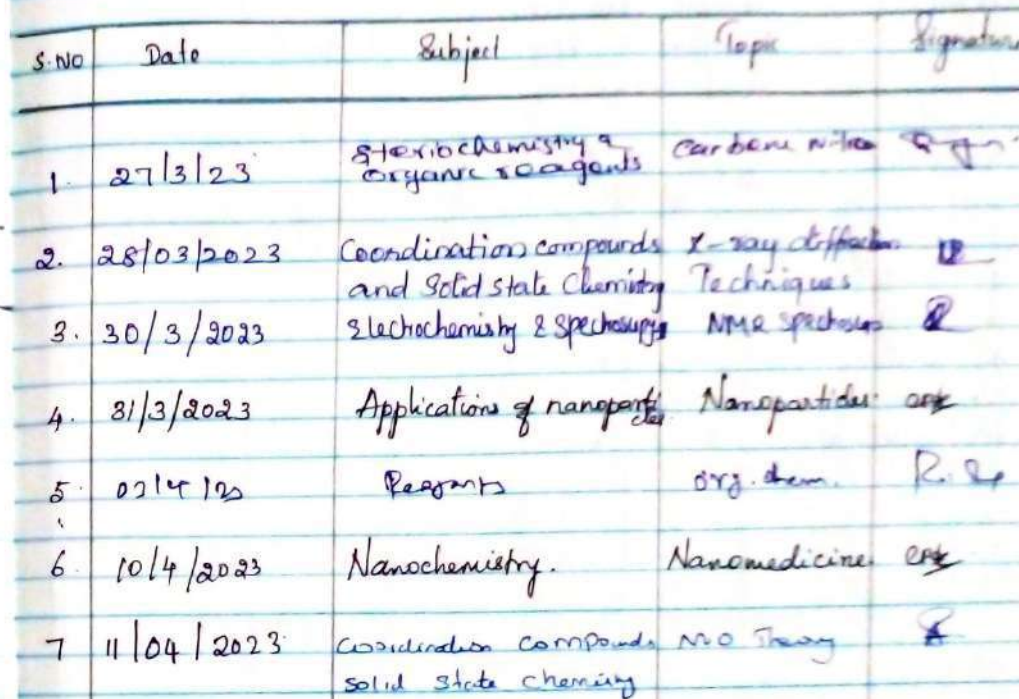 S.No Date Subject Topic Signature
1. 27/3/23 Steriochemistry & Carbene
Organic reagents
2. 28/03/2023 Coordination compounds X-ray diffraction
and Solid state Chemistry Techniques
3. 30/3/2023 Electrochemistry & Spectroscopy NMR Spectroscopy
4. 31/3/2023 Applications of nanoparticles Nanoparticles
5. Reagents org. chem.
6. 10/4/2023 Nanochemistry. Nanomedicine
7 11/04/2023 Coordination compounds MO Theory
solid state chemistry